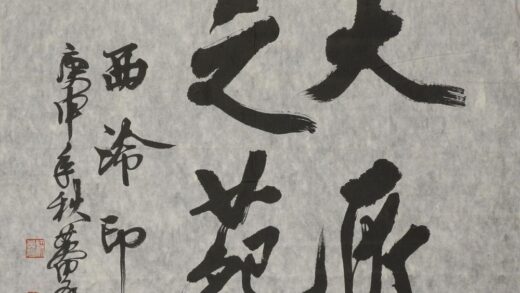 大
之苑
西泠印
庚申年秋